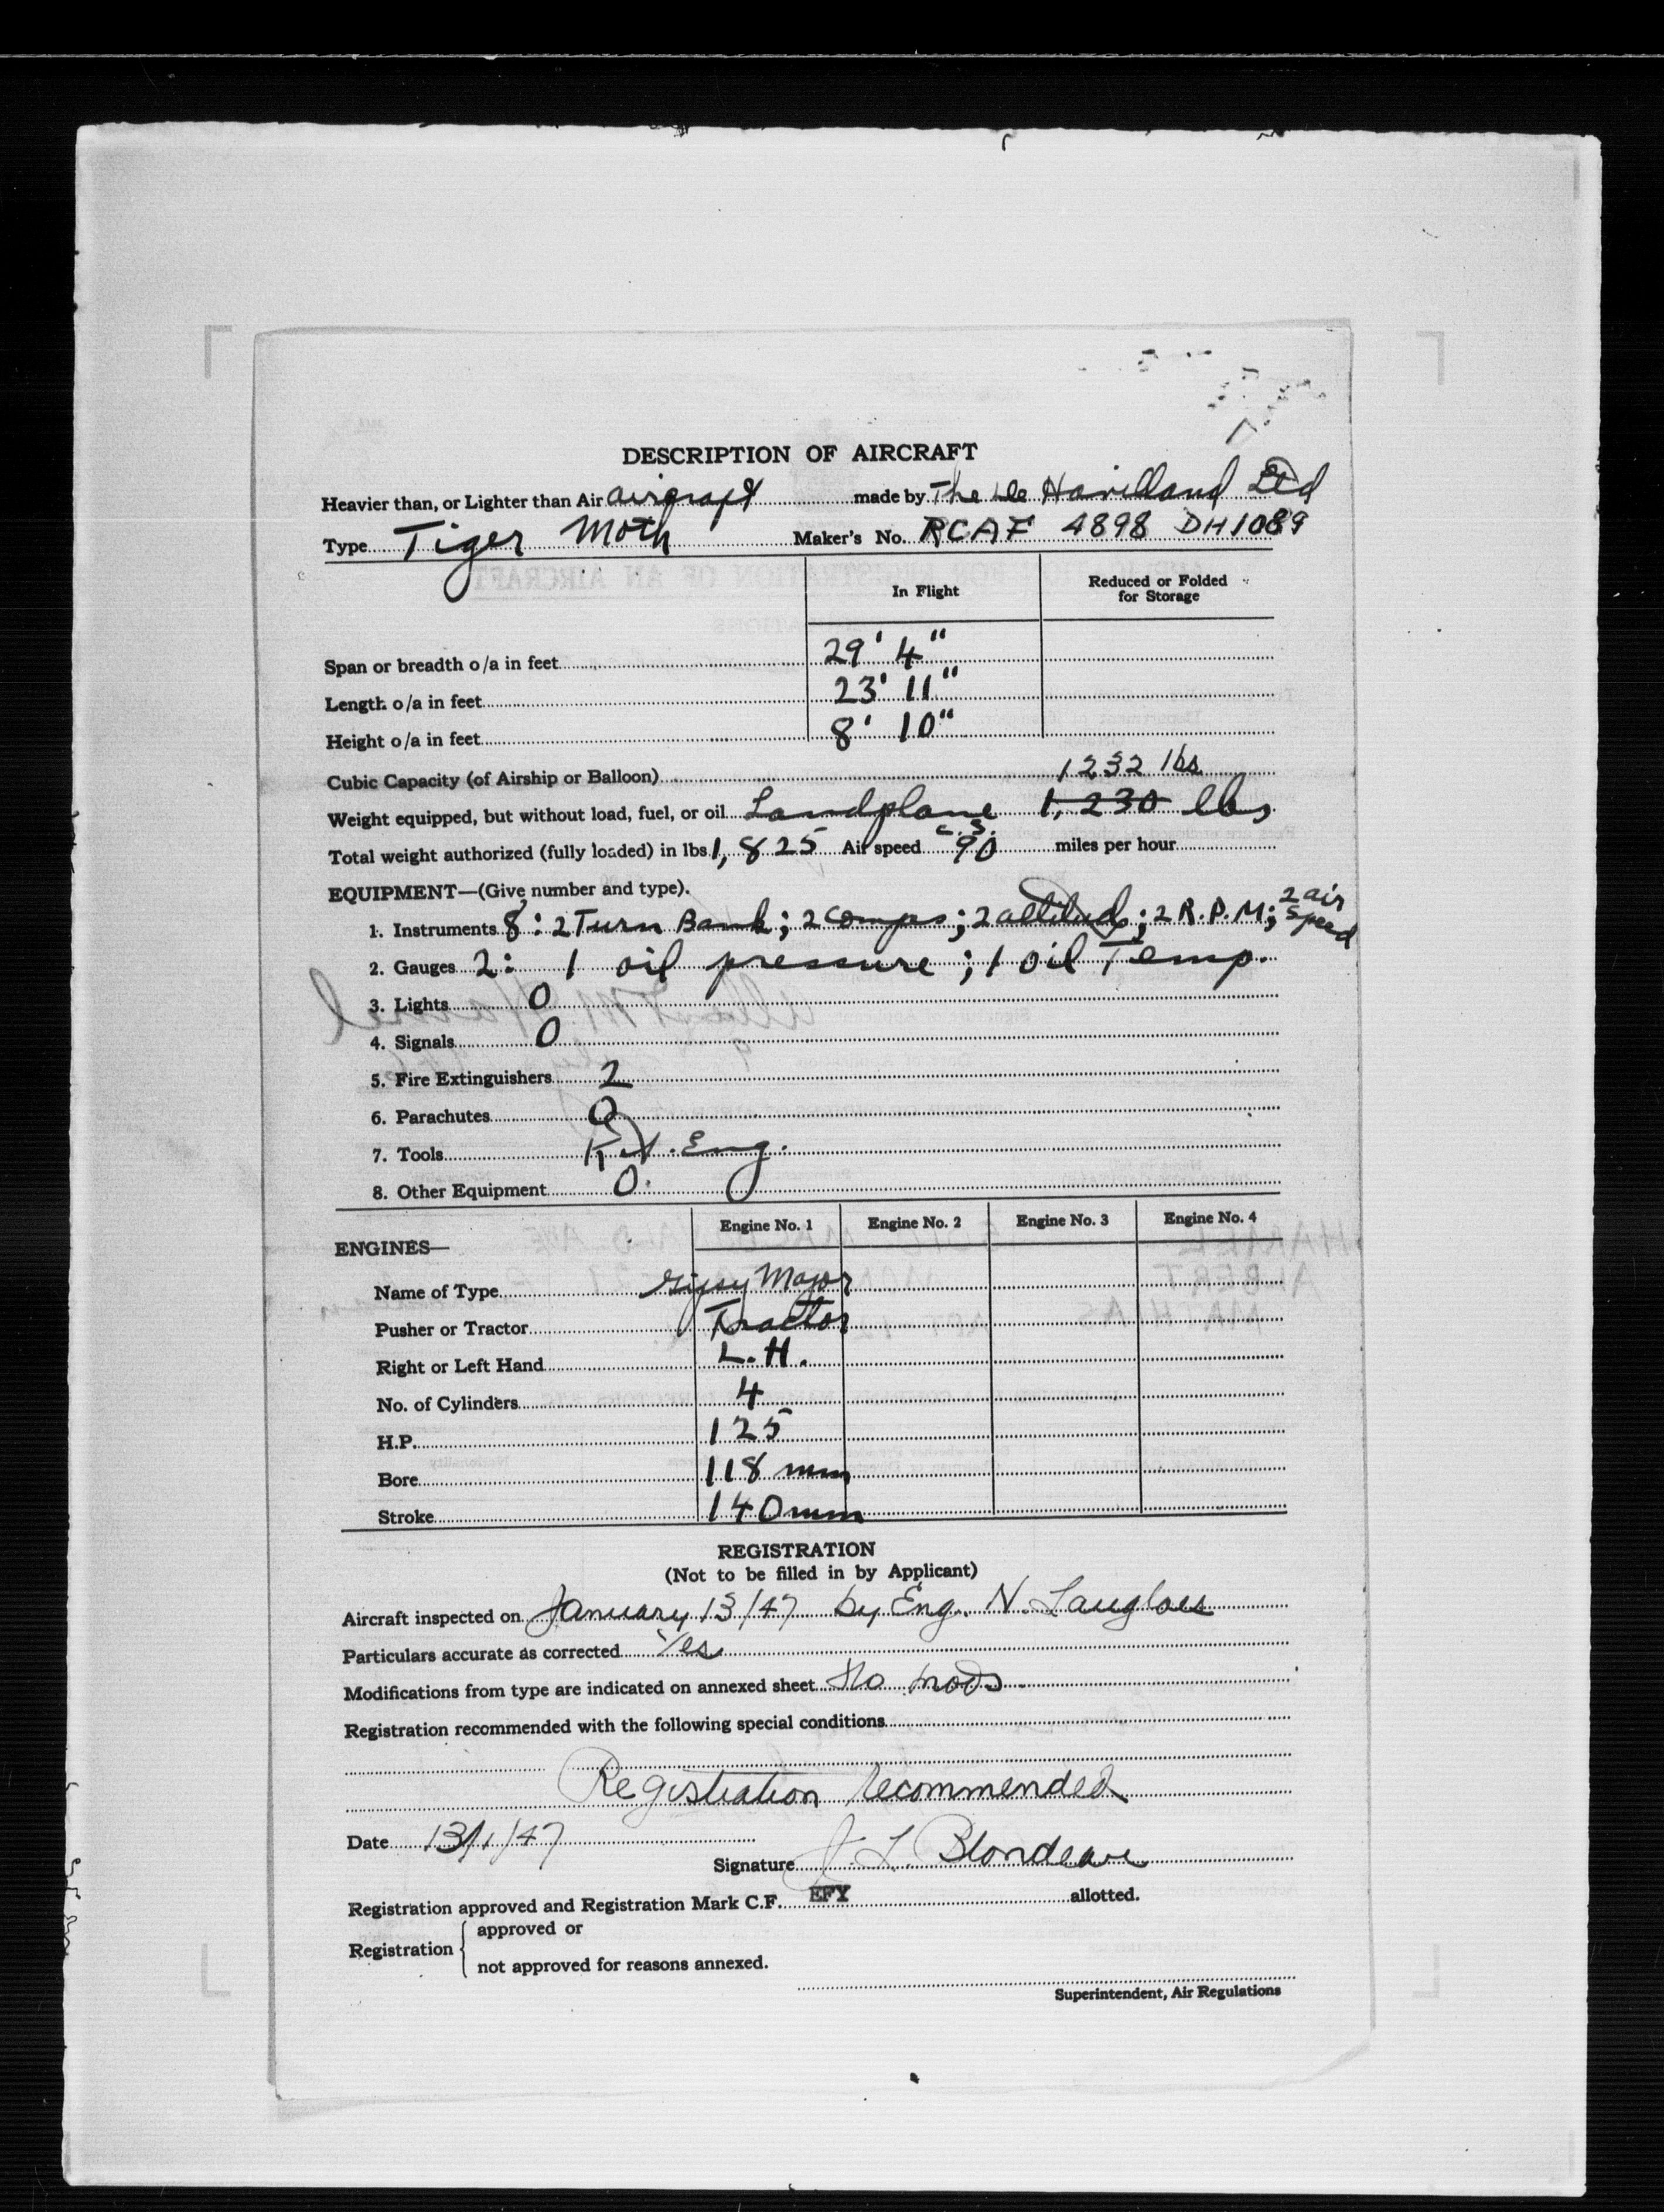 DESCRIPTION OF AIRCRAFT
Heavier than, or Lighter than Air aircraft made by The de Havilland Ltd
Type Tiger Moth Maker's No. RCAF 4898 DH1089
In Flight Reduced or Folded for Storage
Span or breadth o/a in feet 29' 4"
Length o/a in feet 23' 11"
Height o/a in feet 8' 10"
Cubic Capacity (of Airship or Balloon)
1232 lbs
Weight equipped, but without load, fuel, or oil Landplane 1,230 lbs
Total weight authorized (fully loaded) in lbs. 1,825 Air speed C.S. 90 miles per hour
EQUIPMENT—(Give number and type).
1. Instruments 8: 2 Turn Bank; 2 Comps; 2 altitud; 2 R.P.M; 2 air speed
2. Gauges 2: 1 oil pressure; 1 oil Temp.
3. Lights 0
4. Signals 0
5. Fire Extinguishers 2
6. Parachutes 0
7. Tools Eng.
8. Other Equipment 0.
ENGINES— Engine No. 1 Engine No. 2 Engine No. 3 Engine No. 4
Name of Type Gipsy Major
Pusher or Tractor Tractor
Right or Left Hand L.H.
No. of Cylinders 4
H.P. 125
Bore 118 mm
Stroke 140mm
REGISTRATION
(Not to be filled in by Applicant)
Aircraft inspected on January 13/47 by Eng. N. Langlois
Particulars accurate as corrected Yes
Modifications from type are indicated on annexed sheet No mods.
Registration recommended with the following special conditions
Registration recommended
Date 13/1/47
Signature J. L. Blondeau
Registration approved and Registration Mark C.F. EFY allotted.
Registration { approved or
not approved for reasons annexed.
Superintendent, Air Regulations